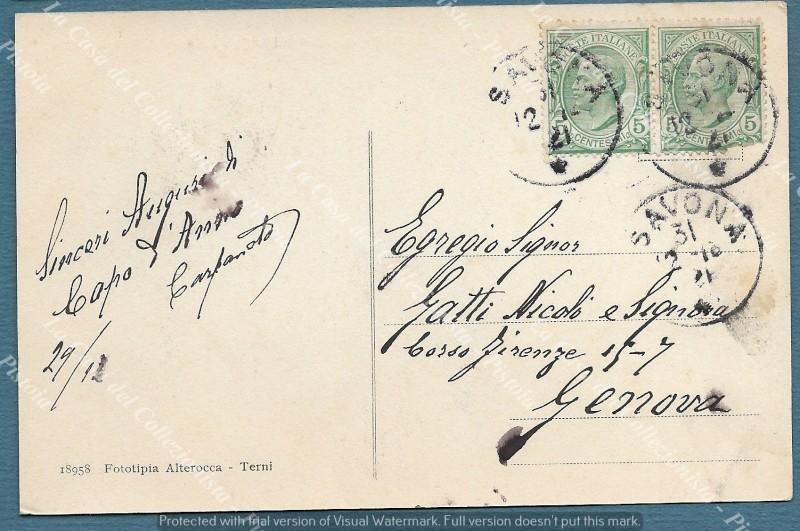 POSTE ITALIANE
5 CENTESIMI 5
POSTE ITALIANE
5 CENTESIMI 5
SAVONA
31
12
SAVONA
SAVONA
31
Sinceri Auguri di
Capo d'Anno
29/12
Egregio Signor
Gatti Nicolò e Signora
Corso Firenze 15-7
Genova
18958 Fototipia Alterocca - Terni
La Casa del Collezionista - Pistoia
Protected with trial version of Visual Watermark. Full version doesn't put this mark.